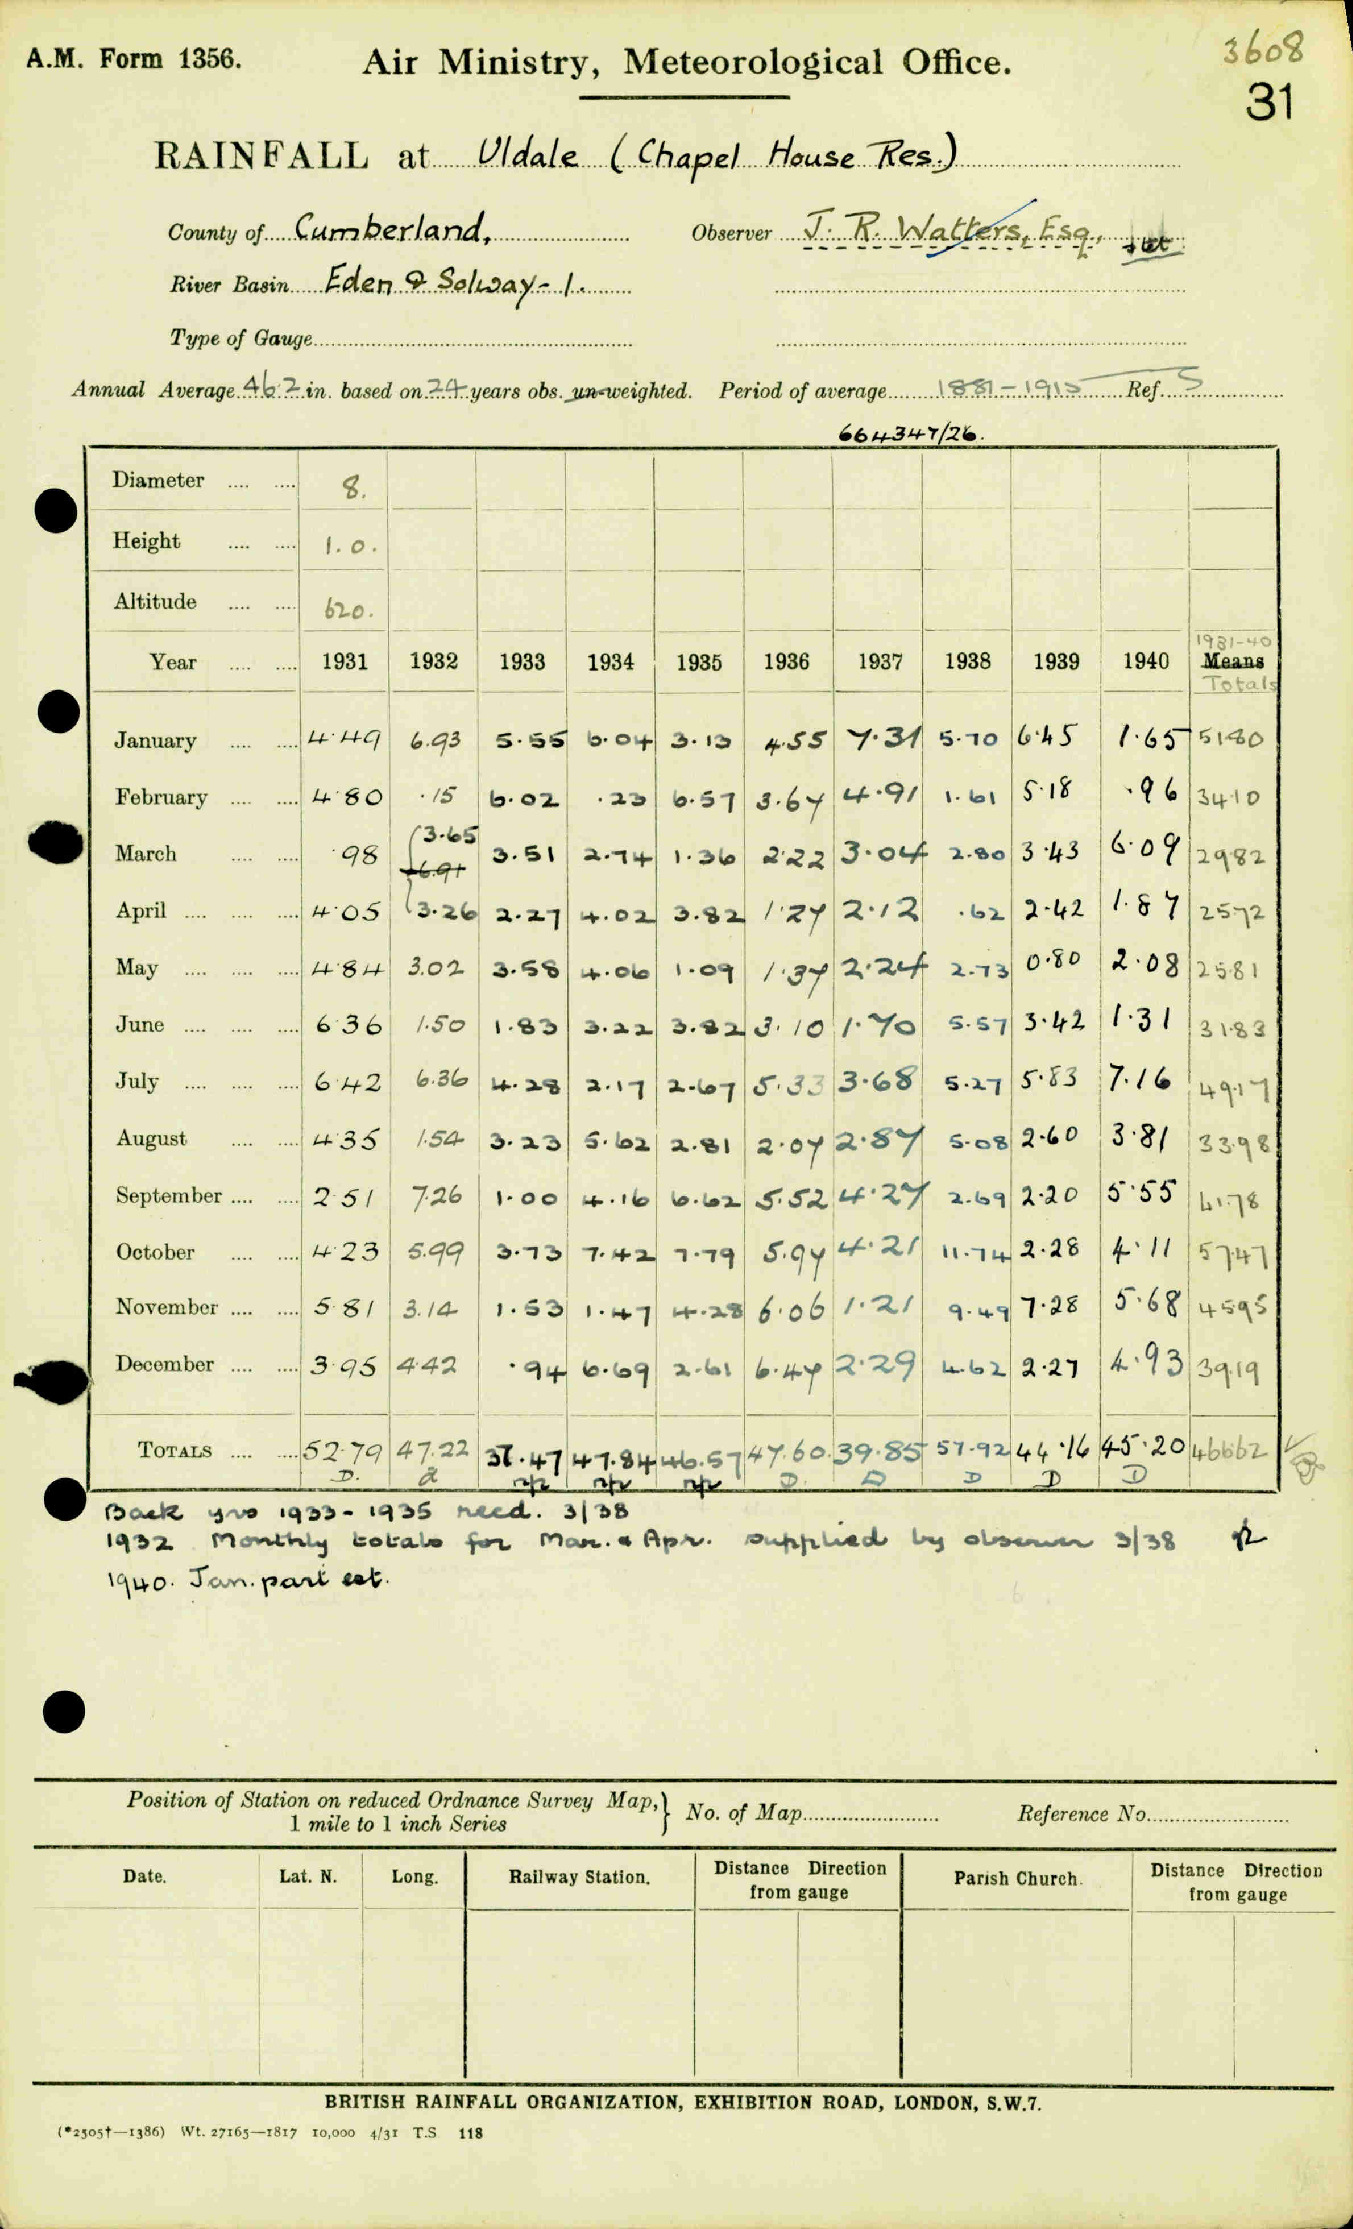 3608
A.M. Form 1356. Air Ministry, Meteorological Office.
31
RAINFALL at Uldale (Chapel House Res.)
County of Cumberland, Observer J. R. Watters, Esq,
River Basin Eden & Solway - 1.
Type of Gauge
Annual Average 46.2 in. based on 24 years obs. un-weighted. Period of average 1881-1915 Ref. S
664347/26.
Diameter 8.
Height 1.0.
Altitude 620.
1931-40
Year 1931 1932 1933 1934 1935 1936 1937 1938 1939 1940 Means
Totals
January 4.49 6.93 5.55 6.04 3.13 4.55 7.31 5.70 6.45 1.65 51.80
February 4.80 .15 6.02 .23 6.57 3.67 4.91 1.61 5.18 .96 34.10
March .98 3.65 3.51 2.74 1.36 2.22 3.04 2.80 3.43 6.09 29.82
6.91
April 4.05 3.26 2.27 4.02 3.82 1.27 2.12 .62 2.42 1.87 25.72
May 4.84 3.02 3.58 4.06 1.09 1.37 2.24 2.73 0.80 2.08 25.81
June 6.36 1.50 1.83 3.22 3.82 3.10 1.70 5.57 3.42 1.31 31.83
July 6.42 6.36 4.28 2.17 2.67 5.33 3.68 5.27 5.83 7.16 49.17
August 4.35 1.54 3.23 5.62 2.81 2.07 2.87 5.08 2.60 3.81 33.98
September 2.51 7.26 1.00 4.16 6.62 5.52 4.27 2.69 2.20 5.55 41.78
October 4.23 5.99 3.73 7.42 7.79 5.97 4.21 11.74 2.28 4.11 57.47
November 5.81 3.14 1.53 1.47 4.28 6.06 1.21 9.49 7.28 5.68 45.95
December 3.95 4.42 .94 6.69 2.61 6.47 2.29 4.62 2.27 4.93 39.19
TOTALS 52.79 47.22 37.47 47.84 46.57 47.60 39.85 57.92 44.16 45.20 466.62
D. D. D D D D
Back yrs 1933-1935 recd. 3/38
1932 Monthly totals for Mar. & Apr. supplied by observer 3/38
1940. Jan. part est.
Position of Station on reduced Ordnance Survey Map,} No. of Map Reference No.
1 mile to 1 inch Series
Date. Lat. N. Long. Railway Station. Distance Direction from gauge Parish Church. Distance Direction from gauge
BRITISH RAINFALL ORGANIZATION, EXHIBITION ROAD, LONDON, S.W.7.
(*2505†—1386) Wt. 27165—1817 10,000 4/31 T.S 118